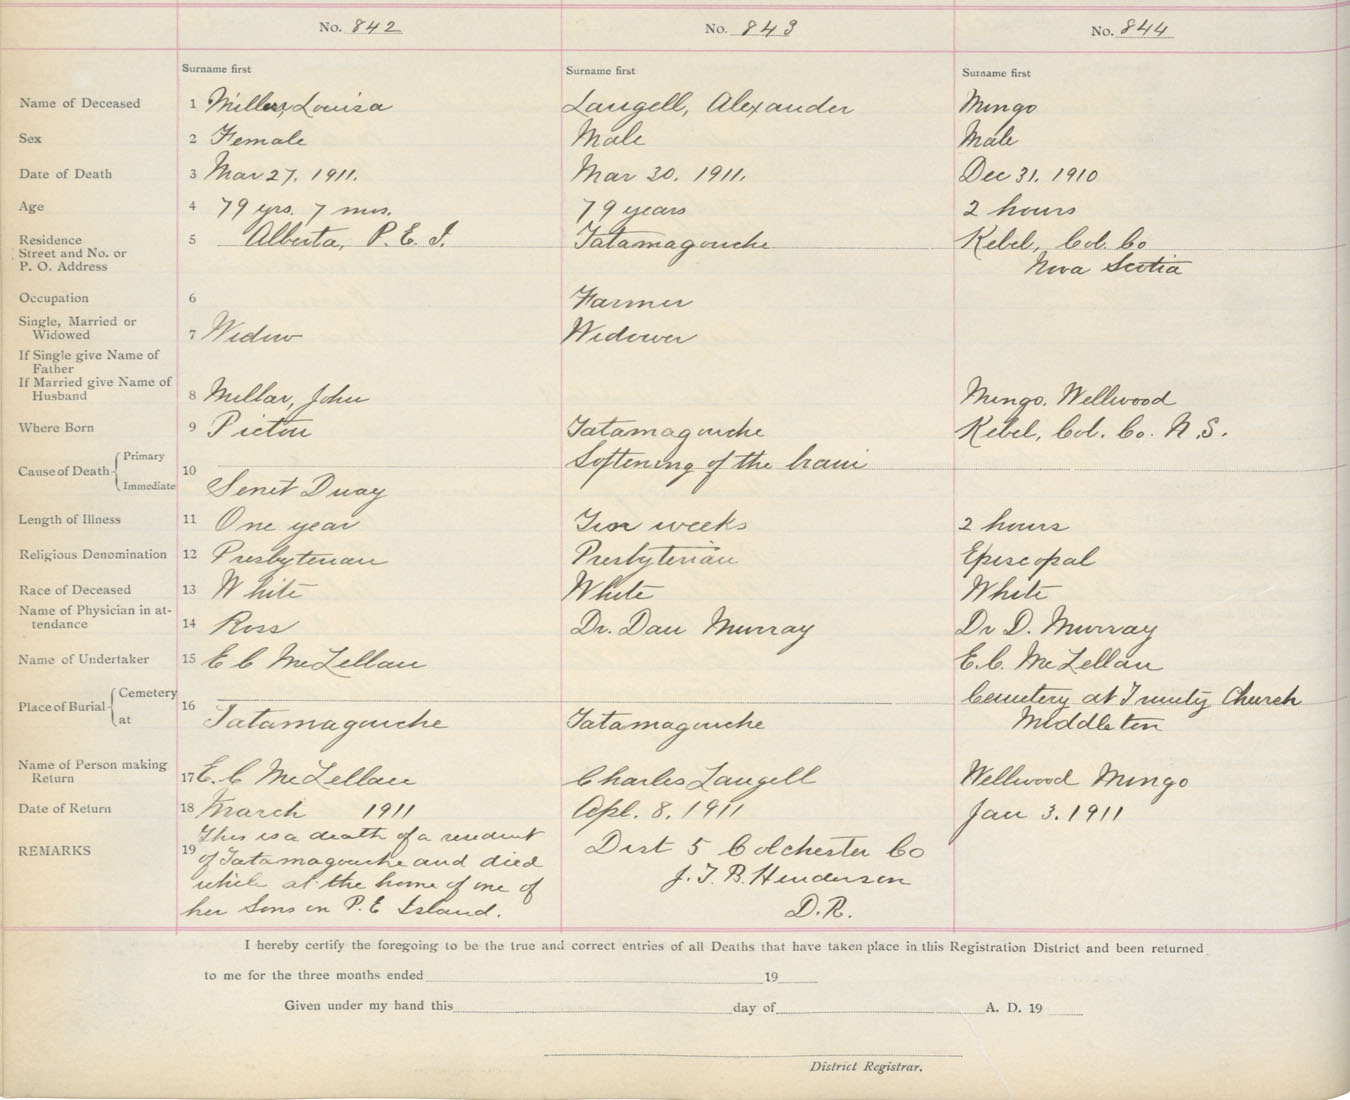 No. 842 No. 843 No. 844
Surname first Surname first Surname first
Name of Deceased 1 Millar, Louisa Langell, Alexander Mingo
Sex 2 Female Male Male
Date of Death 3 Mar 27, 1911. Mar 30, 1911. Dec 31, 1910
Age 4 79 yrs. 7 mos. 79 years 2 hours
Residence 5 Alberta, P. E. I. Tatamagouche Kebel, Col. Co
Street and No. or
P. O. Address Nova Scotia
Occupation 6 Farmer
Single, Married or
Widowed 7 Widow Widower
If Single give Name of
Father
If Married give Name of
Husband 8 Millar, John Mingo, Wellwood
Where Born 9 Pictou Tatamagouche Kebel, Col. Co. N.S.
Primary Softening of the brain
Cause of Death 10
Immediate
Length of Illness 11 One year weeks 2 hours
Religious Denomination 12 Presbyterian Presbyterian Episcopal
Race of Deceased 13 White White White
Name of Physician in at-
tendance 14 Ross Dr. Dan Murray Dr D. Murray
Name of Undertaker 15 E C McLellan E. C. McLellan
Cemetery Cemetery at Trinity Church
Place of Burial 16
at Tatamagouche Tatamagouche Middleton
Name of Person making
Return 17 E. C McLellan Charles Langell Wellwood Mingo
Date of Return 18 March 1911 Apl. 8, 1911 Jan 3. 1911
REMARKS 19 This is a death of a resident
of Tatamagouche and died
while at the home of one of
her Sons on P. E Island.
Dist 5 Colchester Co
J. T. B. Henderson
D. R.
I hereby certify the foregoing to be the true and correct entries of all Deaths that have taken place in this Registration District and been returned
to me for the three months ended 19
Given under my hand this day of A. D. 19
District Registrar.